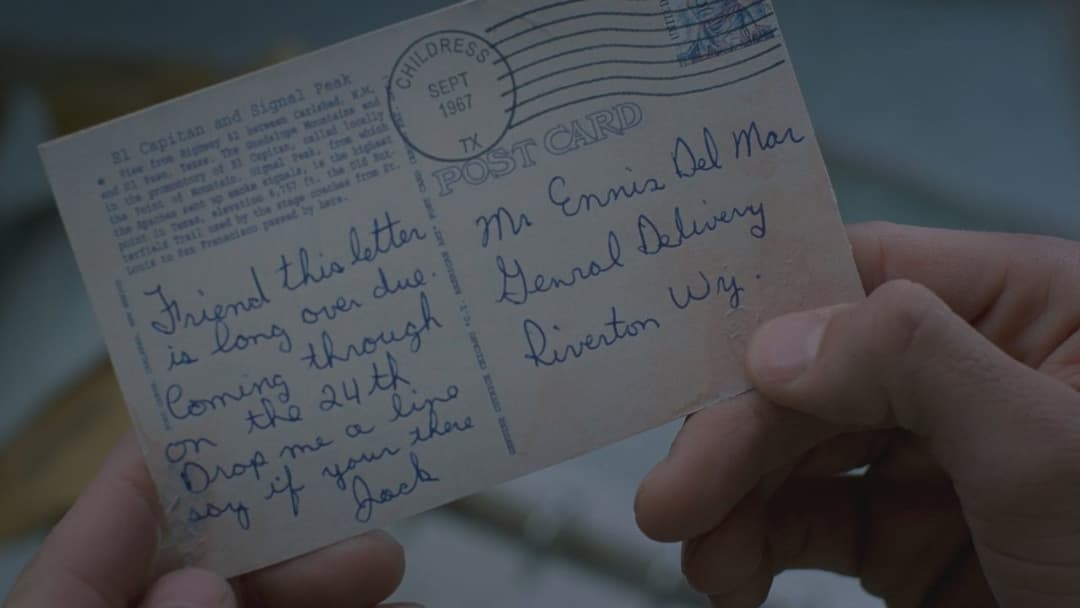 El Capitan and Signal Peak
View from Highway 62 between Carlsbad, N.M.
and El Paso, Texas. The Guadalupe Mountains and
in the promontory of El Capitan, called locally
the Point of Mountain. Signal Peak, from which
the Apaches sent up smoke signals, is the highest
point in Texas, elevation 8,757 ft. the Old But-
terfield Trail used by the stage coaches from St.
Louis to San Francisco passed by here.
CHILDRESS
SEPT
1967
TX
POST CARD
Friend this letter
is long over due.
Coming through
on the 24th
Drop me a line
say if your there
Jack
Mr Ennis Del Mar
Genral Delivery
Riverton Wy.